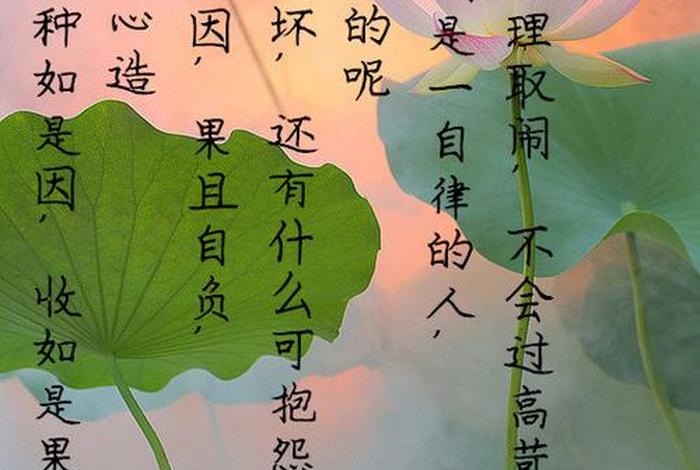 理取闹，不会过高苛
是一自律的人，
的呢
坏，还有什么可抱怨
因，果且自负，
心造
种如是因，收如是果